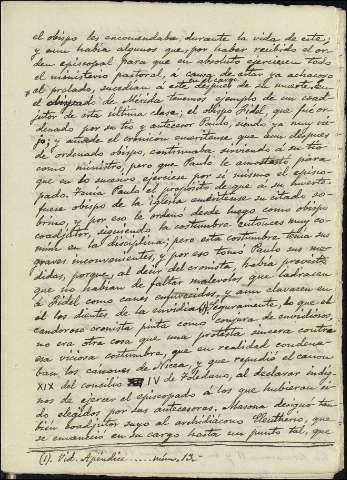 el obispo les encomendaba, durante la vida de este;
y aun había algunos que, por haber recibido el or-
den episcopal para que en absoluto ejerciesen todo
el ministerio pastoral, a causa de estar ya achacoso
en el cargo
el prelado, sucedían a éste después de su muerte. En
el obispado de Mérida tenemos ejemplo de un coad-
jutor de esta última clase; el obispo Fidel, que fue or-
denado por su tío y antecesor Paulo, siendo ya muy vie-
jo; y añade el cronicón emeritense que aun después
de ordenado obispo continuaba sirviendo a su tío
como ministro, pero que Paulo le amonestó para
que en lo sucesivo ejerciese por sí mismo el episco-
pado. Tenía Paulo el propósito de que a su muerte
fuese obispo de la iglesia emeritense su citado so-
brino, y por eso le ordenó desde luego como obispo
coadjutor, siguiendo la costumbre entonces muy co-
mún en la disciplina; pero esta costumbre tenía sus
graves inconvenientes, y por eso tomó Paulo sus me-
didas, porque, al decir del cronista, había previsto
que no habían de faltar malévolos que ladrasen
a Fidel como canes enfurecidos, y aun clavasen en
él los dientes de la envidia (1). Seguramente, lo que el
candoroso cronista pinta como de envidiosos,
no era otra cosa que una protesta sincera contra
esa viciosa costumbre, que en realidad condena-
ban los cánones de Nicea, y que repudió el canon
XIX del concilio IV de Toledano, al declarar indig-
nos de ejercer el episcopado á los que hubieran si-
do elegidos por sus antecesores. Masona designó tam-
bién coadjutor suyo al archidiácono Eleuterio, que
se envaneció en su cargo hasta un punto tal, que
(1). Vid. Apéndice ..... núm. 12.